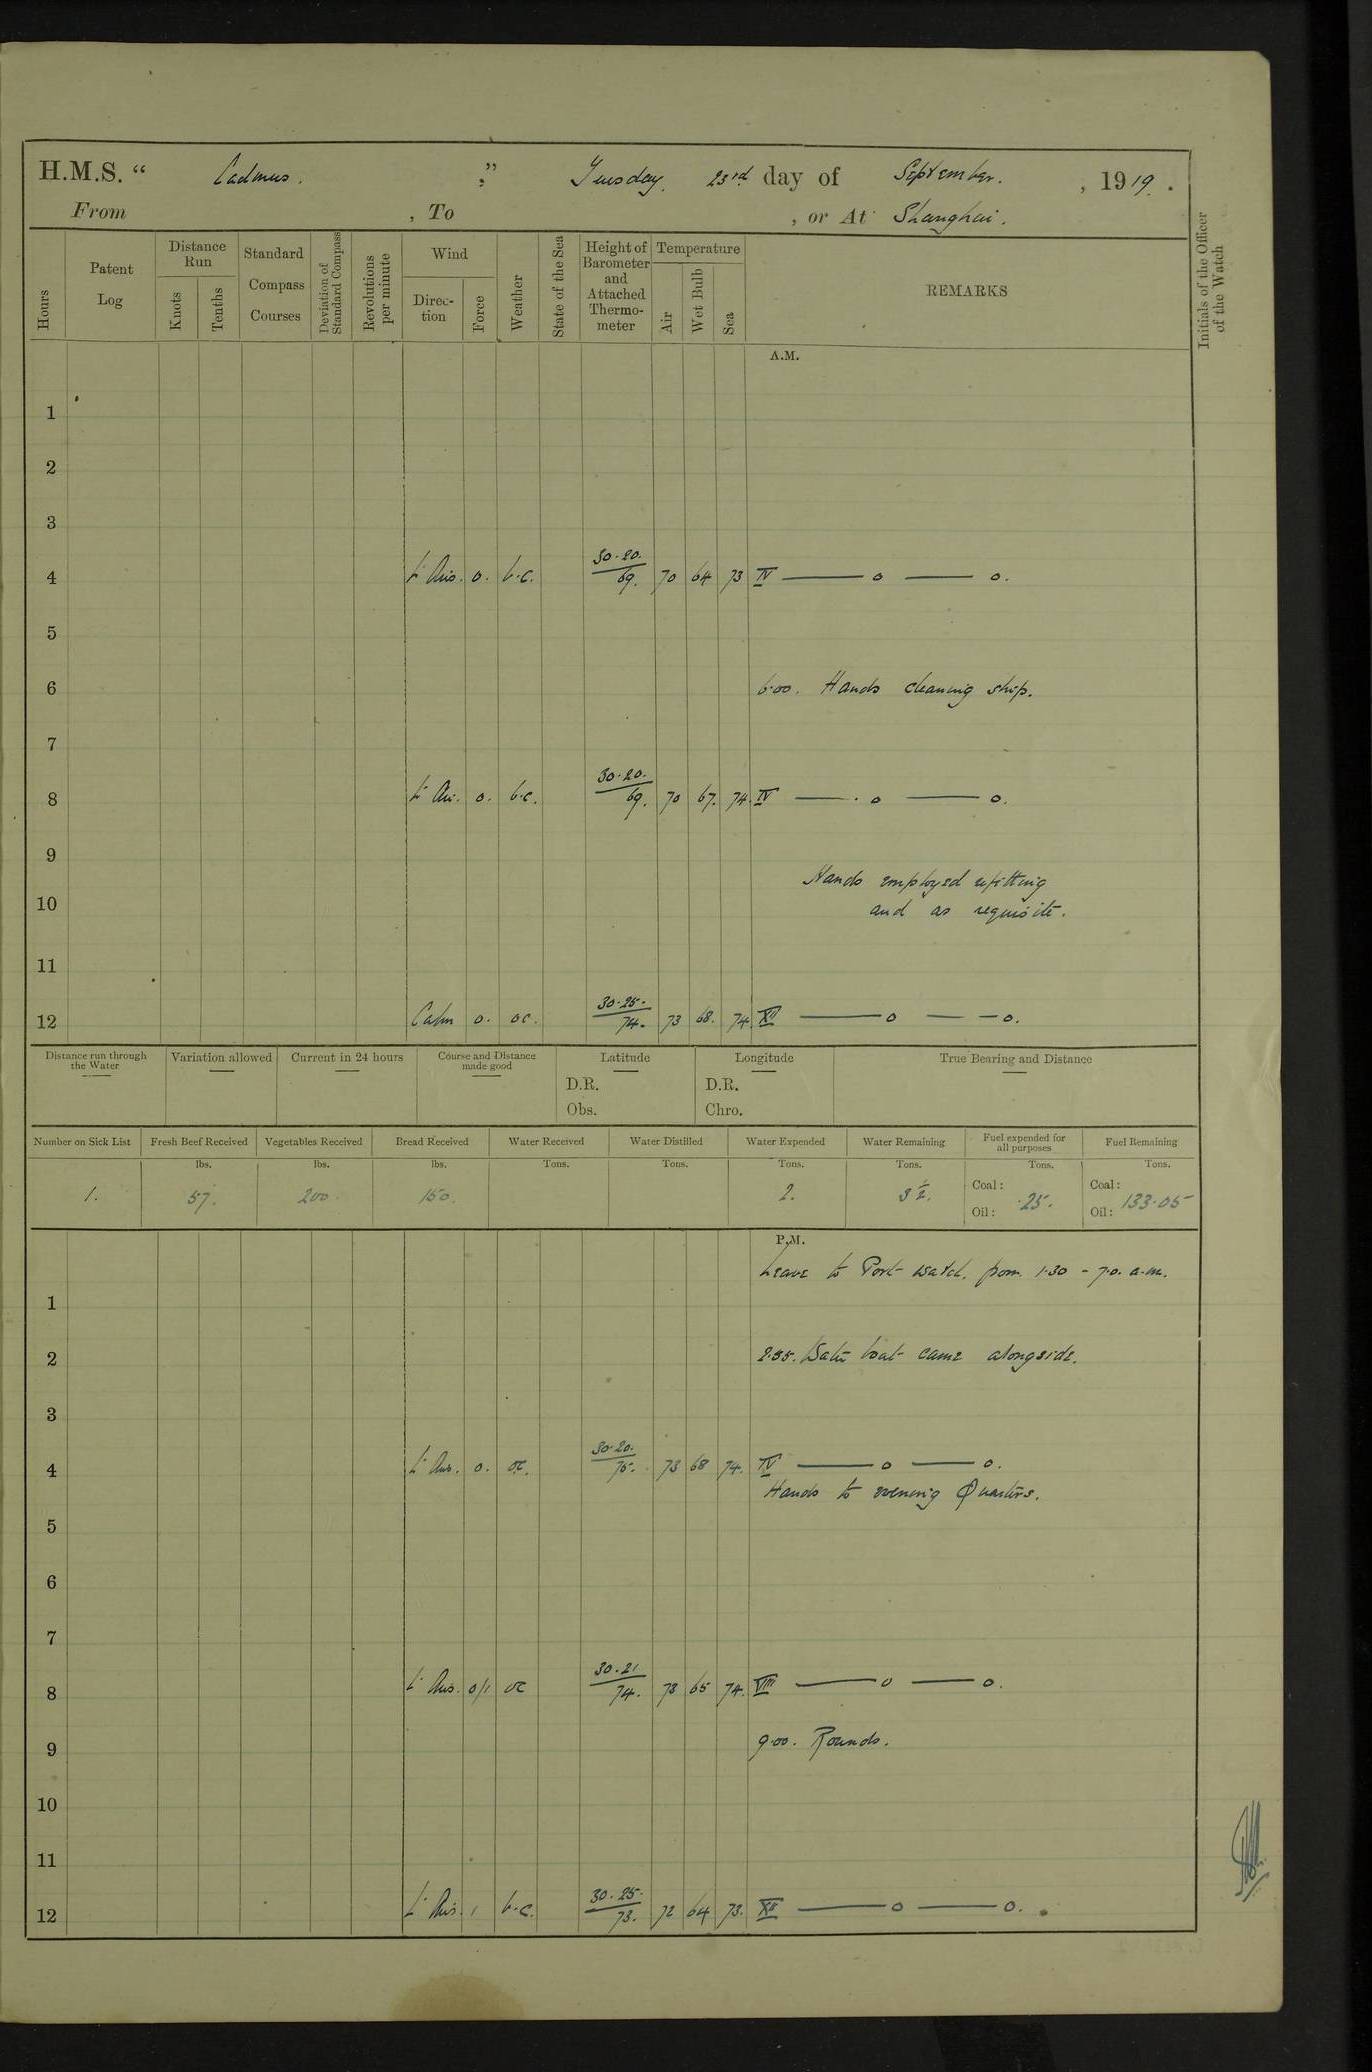 H.M.S. “ Cadmus. ,” Tuesday 23rd day of September. , 1919.
From , To , or At Shanghai.
Hours
Patent Log
Distance Run
Knots
Tenths
Standard Compass Courses
Deviation of Standard Compass
Revolutions per minute
Wind
Direc-tion
Force
Weather
State of the Sea
Height of Barometer and Attached Thermo-meter
Temperature
Air
Wet Bulb
Sea
REMARKS
Initials of the Officer of the Watch
A.M.
1
2
3
4 Lt Airs. 0. b.c. 30.20. / 69. 70 64 73 IV —— o —— o.
5
6 6.00. Hands cleaning ship.
7
8 Lt Airs. 0. b.c. 30.20. / 69. 70 67. 74. IV —— o —— o.
9
Hands employed refitting
10 and as requisite.
11
12 Calm 0. oc. 30.25. / 74. 73 68. 74. XII —— o —— o.
Distance run through the Water
Variation allowed
Current in 24 hours
Course and Distance made good
Latitude
D.R.
Obs.
Longitude
D.R.
Chro.
True Bearing and Distance
Number on Sick List Fresh Beef Received Vegetables Received Bread Received Water Received Water Distilled Water Expended Water Remaining Fuel expended for all purposes Fuel Remaining
lbs. lbs. lbs. Tons. Tons. Tons. Tons. Tons. Tons.
1. 57. 200. 150. 2. 3½. Coal: Oil: .25. Coal: Oil: 133.05
P.M.
Leave to Port watch. from 1.30 - 7.0. a.m.
1
2 2.55. Water boat came alongside.
3
4 Lt Airs. 0. oc. 30.20. / 75. 73 68 74. IV —— o —— o.
Hands to evening Quarters.
5
6
7
8 Lt Airs. 0/1 oc 30.21 / 74. 73 65 74. VIII —— o —— o.
9 9.00. Rounds.
10
11
12 Lt Airs. 1 b.c. 30.25. / 73. 72 64 73. XII —— o —— o.